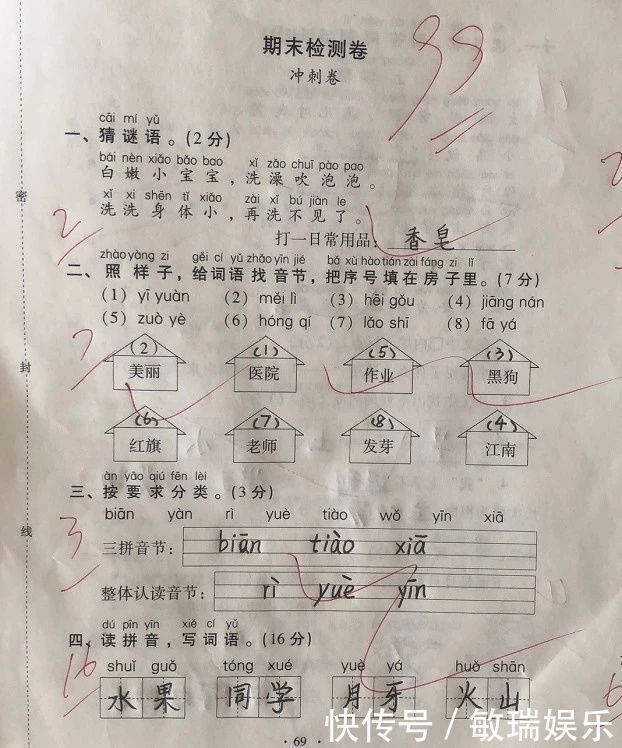 期末检测卷
99
冲刺卷
cāi mí yǔ
一、猜谜语。(2分)
bái nèn xiǎo bǎo bao xǐ zǎo chuī pào pao
白嫩小宝宝，洗澡吹泡泡。
xǐ xi shēn tǐ xiǎo zài xǐ bú jiàn le
洗洗身体小，再洗不见了。
2
打一日常用品：香皂
zhào yàng zi gěi cí yǔ zhǎo yīn jié bǎ xù hào tián zài fáng zi lǐ
二、照样子，给词语找音节，把序号填在房子里。(7分)
(1) yī yuàn (2) měi lì (3) hēi gǒu (4) jiāng nán
(5) zuò yè (6) hóng qí (7) lǎo shī (8) fā yá
7
(2) (1) (5) (3)
美丽 医院 作业 黑狗
(6) (7) (8) (4)
红旗 老师 发芽 江南
àn yāo qiú fēn lèi
三、按要求分类。(3分)
biān yàn rì yuè tiào wǒ yīn xiā
3
三拼音节：biān tiào xiā
整体认读音节：rì yuè yīn
dú pīn yīn xiě cí yǔ
四、读拼音，写词语。(16分)
16
shuǐ guǒ tóng xué yuè yá huǒ shān
水果 同学 月牙 火山
密
封
线
·69·
快传号/敏瑞娱乐